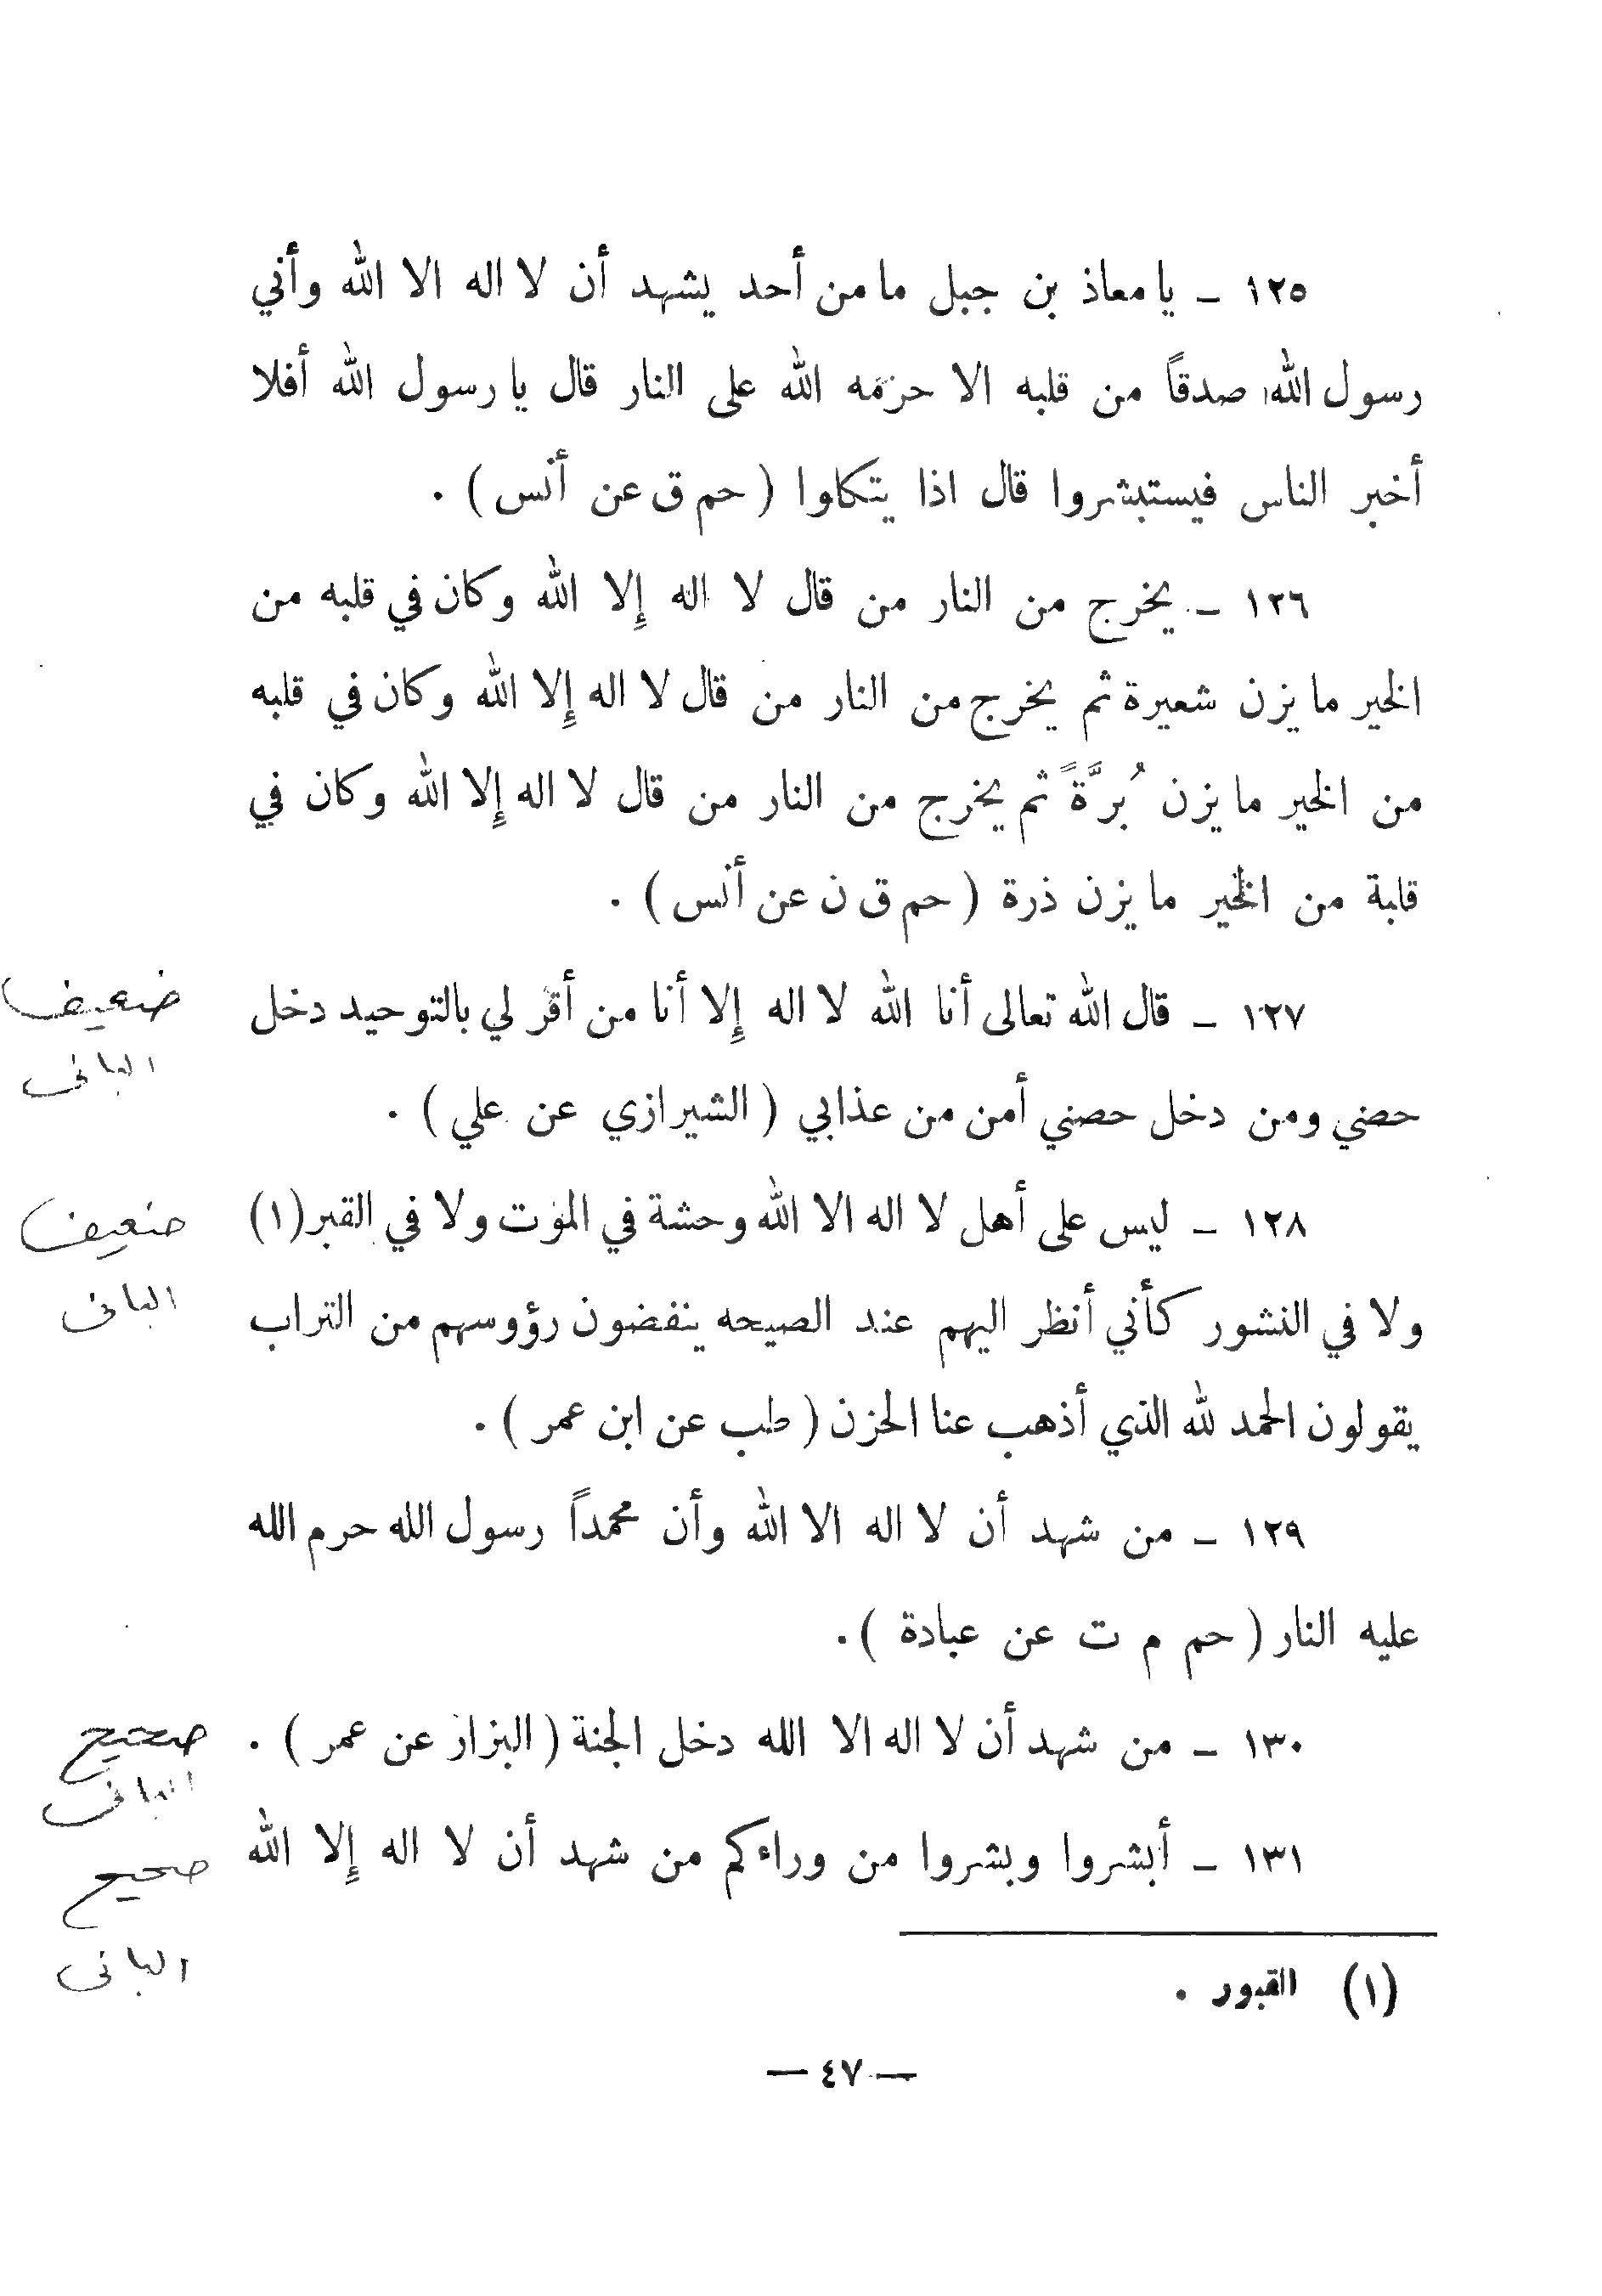 ١٢٥ ــ يا معاذ بن جبل ما من أحد يشهد أن لا اله الا الله وأني
رسول الله صدقاً من قلبه الا حرّمه الله على النار قال يا رسول الله أفلا
أخبر الناس فيستبشروا قال اذا يتكلوا ( حم ق عن أنس ) .
١٢٦ ــ يخرج من النار من قال لا اله إلا الله وكان في قلبه من
الخير ما يزن شعيرة ثم يخرج من النار من قال لا اله إلا الله وكان في قلبه
من الخير ما يزن بُرَّةً ثم يخرج من النار من قال لا اله إلا الله وكان في
قلبة من الخير ما يزن ذرة ( حم ق ن عن أنس ) .
١٢٧ ــ قال الله تعالى أنا الله لا اله إلا أنا من أقرّ لي بالتوحيد دخل
ضعيف
البانى
حضني ومن دخل حصني أمن من عذابي ( الشيرازي عن علي ) .
١٢٨ ــ ليس على أهل لا اله الا الله وحشة في الموت ولا في القبر(١)
ضعيف
البانى
ولا في النشور كأني أنظر اليهم عند الصيحه ينفضون رؤوسهم من التراب
يقولون الحمد لله الذي أذهب عنا الحزن ( طب عن ابن عمر ) .
١٢٩ ــ من شهد أن لا اله الا الله وأن محمداً رسول الله حرم الله
عليه النار ( حم م ت عن عبادة ) .
١٣٠ ــ من شهد أن لا اله الا الله دخل الجنة ( البزار عن عمر ) .
صحيح
البانى
١٣١ ــ أبشروا وبشروا من وراءكم من شهد أن لا اله إلا الله
صحيح
البانى
(١) القبور .
— ٤٧ —